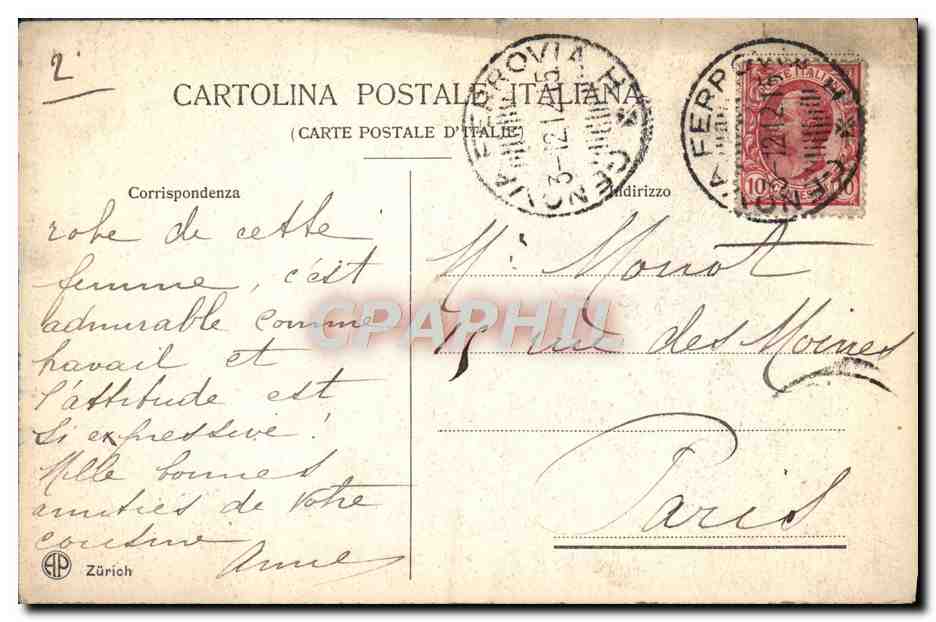 2
CARTOLINA POSTALE ITALIANA
(CARTE POSTALE D'ITALIE)
GENOVA FERROVIA H
3-12.14.15
GENOVA FERROVIA H
10 10
Corrispondenza
Indirizzo
robe de cette
femme, c'est
admirable comme
travail et
l'attitude est
si expressive!
Mille bonnes
amitiés de votre
cousine
Anne
Mr Monot
15 rue des Moines
Paris
CPAPHIL
AP Zürich